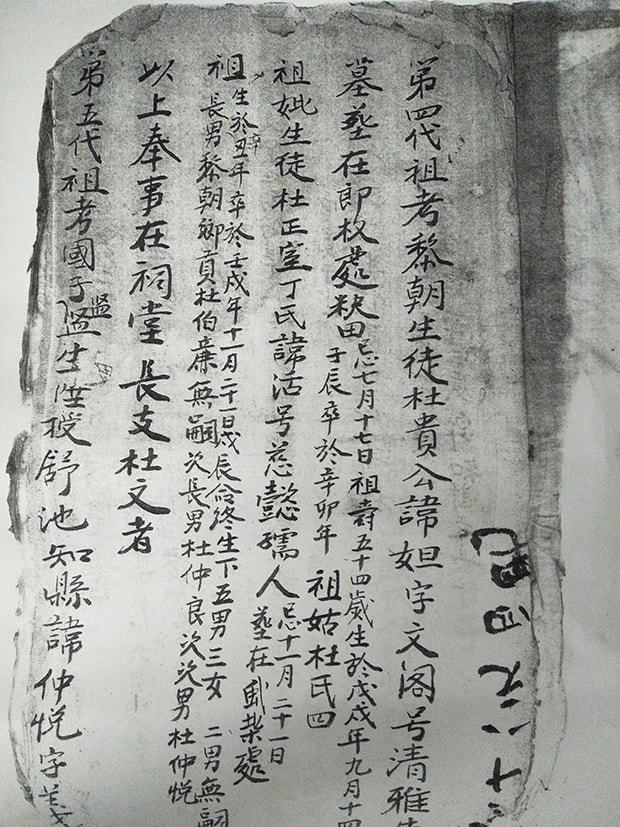 第四代祖考黎朝生徒杜貴公諱妲字文阁号清雅
墓塟在即杈處秧田
忌七月十七日祖壽五十四歲生於戊戌年九月十四
于辰卒於辛卯年 祖姑杜氏四
祖妣生徒杜正室丁氏諱活号慈懿孺人
忌十一月二十一日
塟在處
祖生於辛丑年卒於壬戌年十一月二十一日戌辰令終生下五男三女 二男無嗣
長男黎朝鄉貢杜伯廉無嗣次長男杜仲良次次男杜仲悅
以上奉事在祠堂長支杜文者
第五代祖考國子監生陞授舒池知縣諱仲悅字